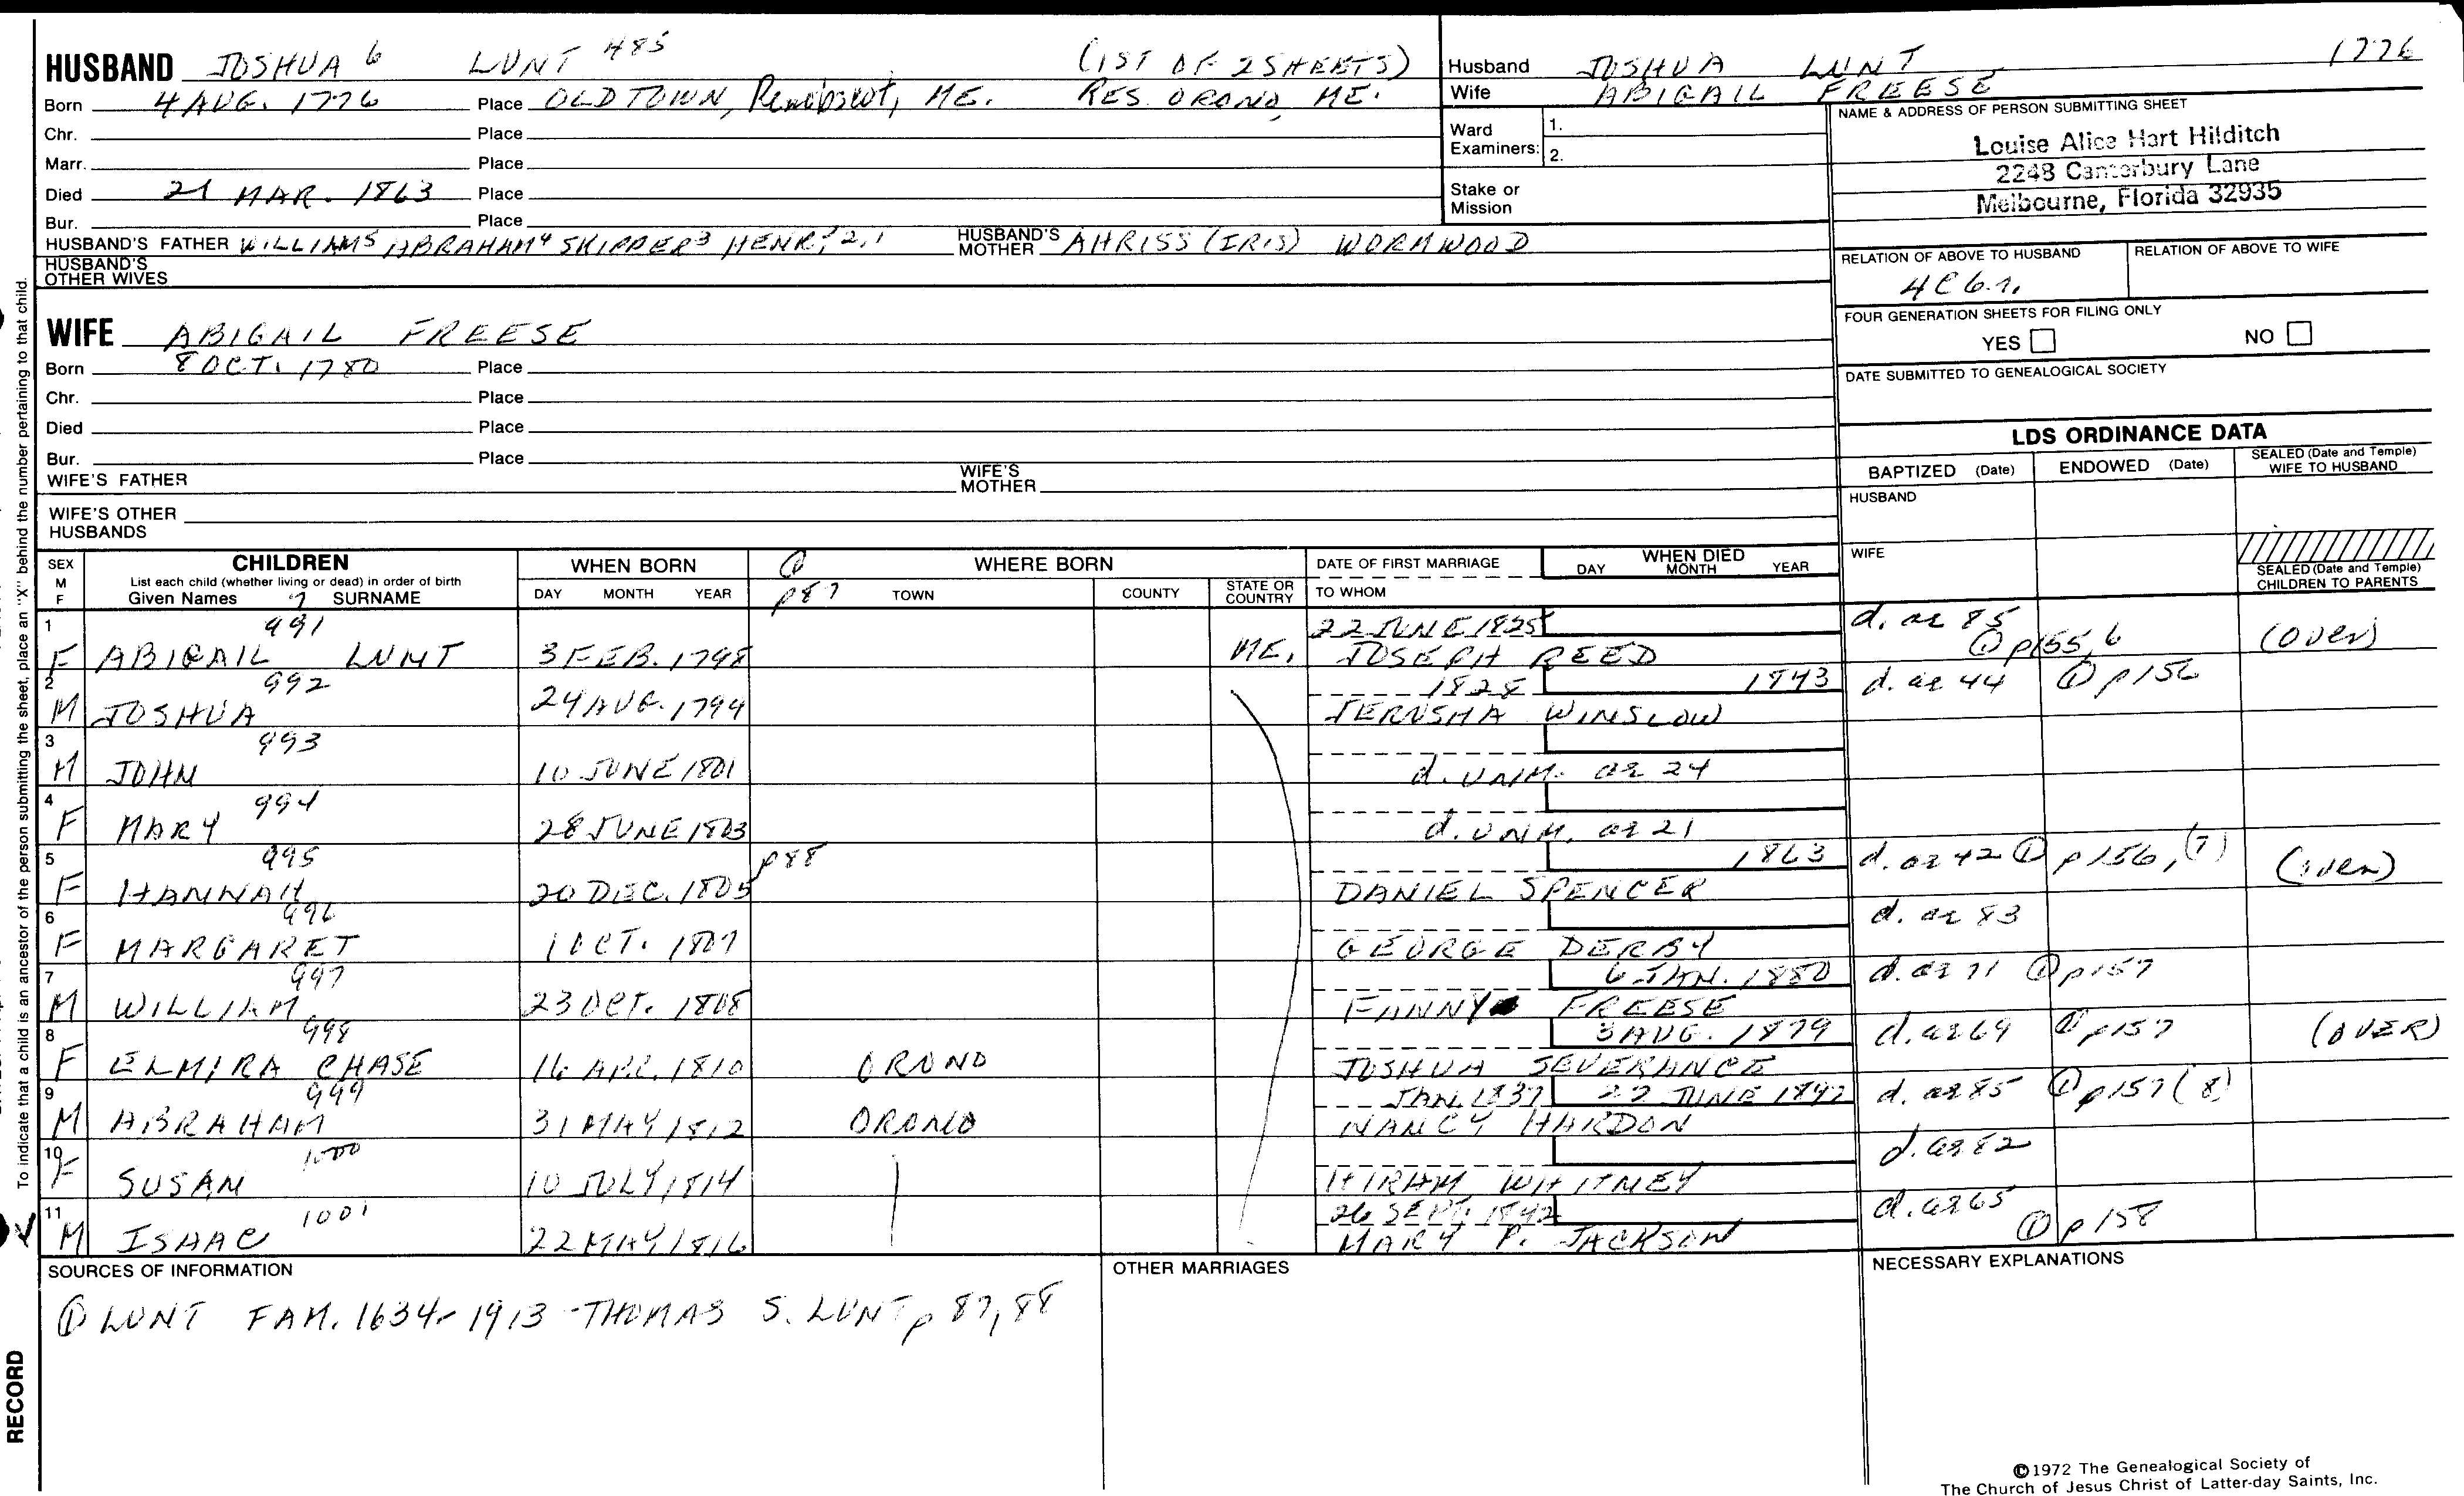 HUSBAND JOSHUA 6 LUNT 485 (1ST OF 2 SHEETS)
Born 4 AUG. 1776 Place OLD TOWN, Penobscot, ME. RES. ORONO, ME.
Chr. Place
Marr. Place
Died 21 MAR. 1863 Place
Bur. Place
HUSBAND'S FATHER WILLIAM5 ABRAHAM4 SKIPPER3 HENRY2,1 HUSBAND'S MOTHER AHRISS (IRIS) WORMWOOD
HUSBAND'S OTHER WIVES
Husband JOSHUA LUNT 1776
Wife ABIGAIL FREESE
Ward Examiners: 1.
2.
Stake or Mission
NAME & ADDRESS OF PERSON SUBMITTING SHEET
Louise Alice Hart Hilditch
2248 Canterbury Lane
Melbourne, Florida 32935
RELATION OF ABOVE TO HUSBAND RELATION OF ABOVE TO WIFE
4C 6.r.
FOUR GENERATION SHEETS FOR FILING ONLY
YES NO
DATE SUBMITTED TO GENEALOGICAL SOCIETY
WIFE ABIGAIL FREESE
Born 8 OCT. 1780 Place
Chr. Place
Died Place
Bur. Place
WIFE'S FATHER WIFE'S MOTHER
WIFE'S OTHER HUSBANDS
LDS ORDINANCE DATA
BAPTIZED (Date) ENDOWED (Date) SEALED (Date and Temple) WIFE TO HUSBAND
HUSBAND
WIFE
SEALED (Date and Temple) CHILDREN TO PARENTS
SEX M F CHILDREN List each child (whether living or dead) in order of birth Given Names 7 SURNAME
WHEN BORN DAY MONTH YEAR
① p87 WHERE BORN TOWN COUNTY STATE OR COUNTRY
DATE OF FIRST MARRIAGE TO WHOM
WHEN DIED DAY MONTH YEAR
1 991 22 JUNE 1825 d. ae 85
F ABIGAIL LUNT 3 FEB. 1798 ME. JOSEPH REED ① p155,6 (over)
2 992 1828 1843 d. ae 44 ① p156
M JOSHUA 24 AUG. 1799 JERUSHA WINSLOW
3 993
M JOHN 10 JUNE 1801 d. UNM. ae 24
4 994
F MARY 28 JUNE 1803 d. UNM. ae 21
5 995 p88 1863 d. ae 42 ① p156,(7) (over)
F HANNAH 20 DEC. 1805 DANIEL SPENCER
6 996 d. ae 83
F MARGARET 1 OCT. 1807 GEORGE DERBY
7 997 6 JAN. 1880 d. ae 71 ① p157
M WILLIAM 23 OCT. 1808 FANNY FREESE
8 998 3 AUG. 1879 d. ae 69 ① p157 (OVER)
F ELMIRA CHASE 16 APR. 1810 ORONO JOSHUA SEVERANCE
9 999 JAN. 1837 22 JUNE 1897 d. ae 85 ① p157(8)
M ABRAHAM 31 MAY 1812 ORONO NANCY HARDON
10 1000 d. ae 82
F SUSAN 10 JULY 1814 HIRAM WHITNEY
11 1001 26 SEPT. 1842 d. ae 65
M ISAAC 22 MAY 1816 MARY P. JACKSON ① p158
SOURCES OF INFORMATION
① LUNT FAM. 1634-1913 - THOMAS S. LUNT p 87, 88
OTHER MARRIAGES
NECESSARY EXPLANATIONS
To indicate that a child is an ancestor of the person submitting the sheet, place an "X" behind the number pertaining to that child.
RECORD
©1972 The Genealogical Society of
The Church of Jesus Christ of Latter-day Saints, Inc.